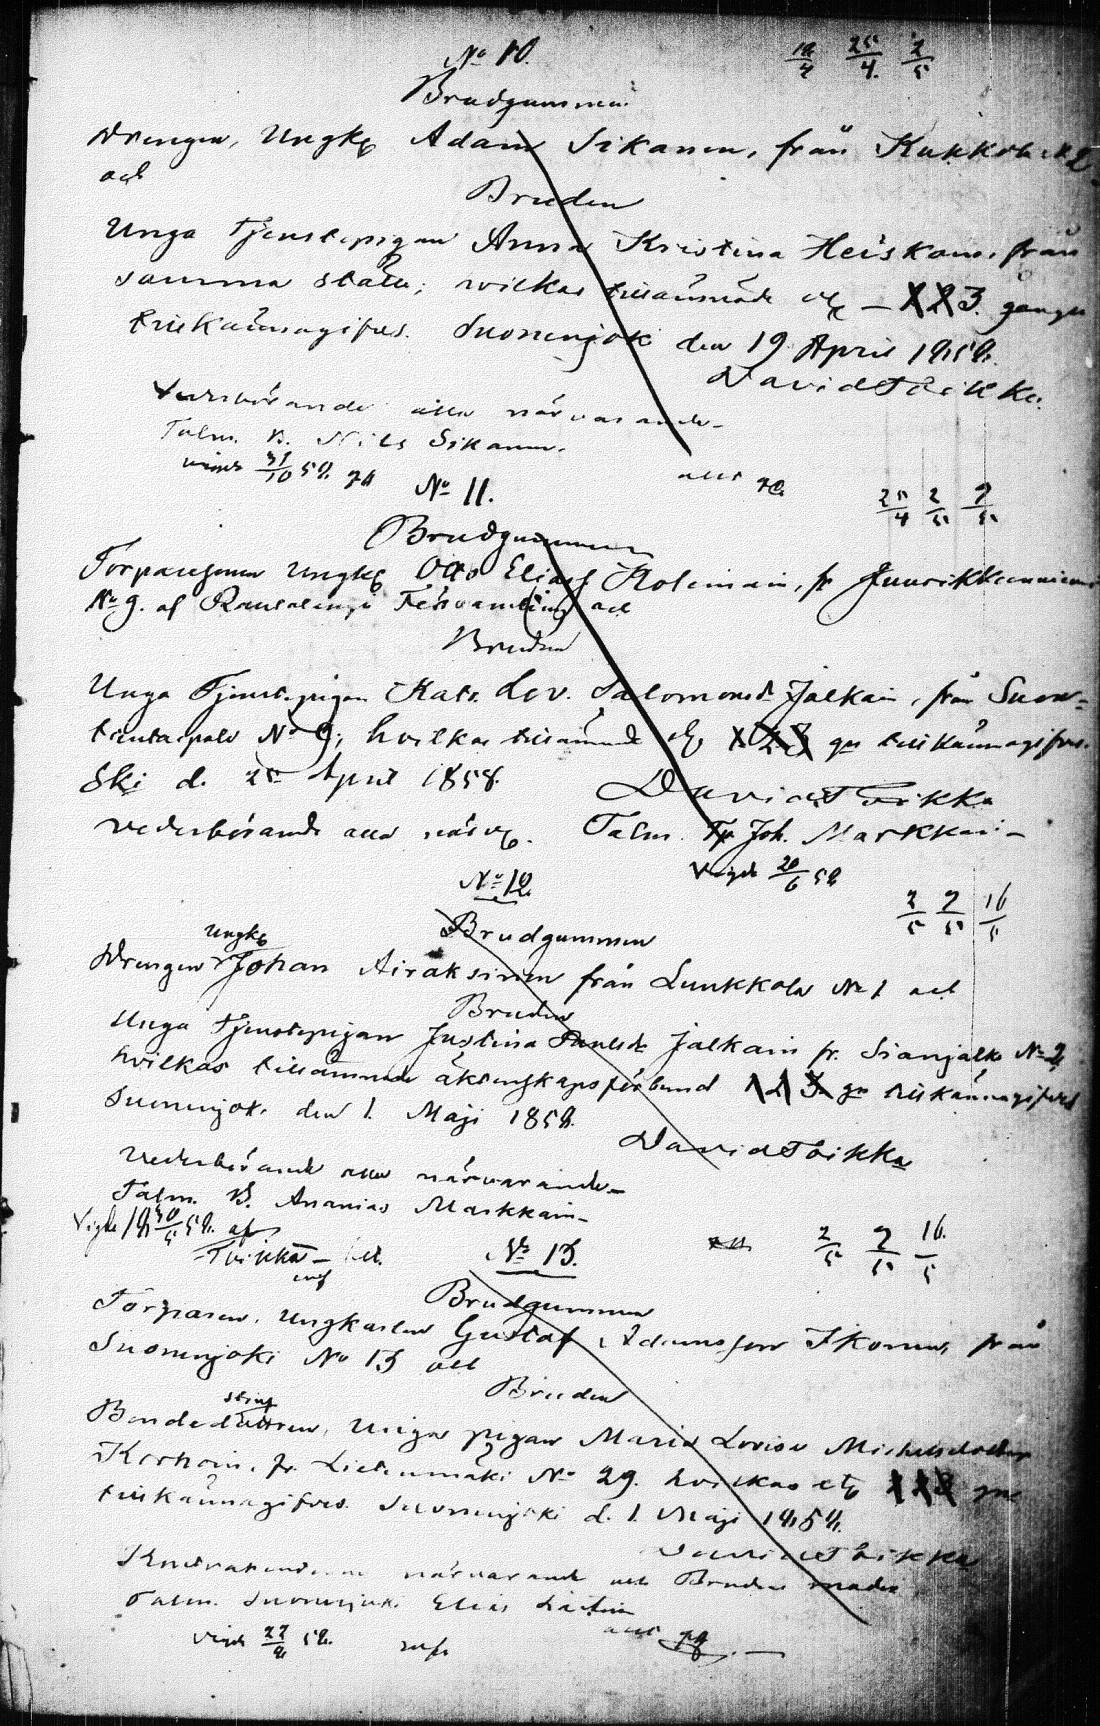 No 10. 18/4 25/4. 2/5
Brudgummen
Drengen, Ungk. Adam Sikanen, från Kukkola N 2.
och
Bruden
Unga Tjenstepigan Anna Kristina Heiskain, från
samma ställe; wilkas tillämnade etc – 1 2 3. gången
tillkännagifves. Suonenjoki den 19 April 1858.
David Toikka.
Vederbörande alla närvarande –
Talm. B. Nils Sikanen.
vigde 31/10 58.
No 11. 25/4 2/5 9/5
Brudgummen
Torparesonen Ungk. Otto Eliass. Holimain, fr
No 9. af Rautalampi Församling och
Bruden
Unga Tjenstepigan Kats. Lov. Salomonsd. Jalkain, från Suon-
No 9; hvilkas tillämnade etc 1 2 3 gn tillkännagifves.
Ski d. 25 April 1858.
David Toikka
Vederbörande alla närv. Talm. Tp Joh. Markkain –
Vigde 20/6 58
No 12 2/5 9/5 16/5
Brudgummen
Ungk
Drengen Johan Airaksinen från Luukkola No 1 och
Bruden
Unga Tjenstepigan Justina Paulsdr Jalkain fr. Sianjalka No 2,
hvilkas tillämnade äktenskapsförbund 1 2 3 gn tillkännagifves
Suonenjoki den 1. Maji 1858.
David Toikka
Vederbörande alla närvarande –
Talm. B. Ananias Markkain –
Vigde 30/5 58. af
Toikka –
No 13. 2/5 9/5 16/5
Brudgummen
Torparen, Ungkarlen Gustaf Adamsson Ikonen, från
Suonenjoki No 13 och
Bruden
Bondedottren, Unga pigan Maria Lovisa Michelsdotter
Korhoin, fr. Lietenmäki No 29. hvilkas etc 1 2 3 gn
tillkännagifves. Suonenjoki d. 1. Maji 1858.
David Toikka
Kontrahenterne närvarande och Brudens moder
Talm. Suonenjoki Elias
vigde 22/8 58.